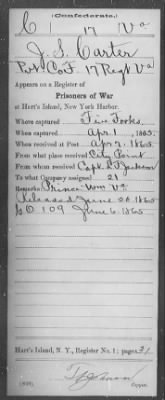 (Confederate.)
C 17 Va
J. S. Carter
Pvt Co F. 17 Regt Va
Appears on a Register of
Prisoners of War
at Hart's Island, New York Harbor.
Where captured Five Forks
When captured Apr 1, 1865.
When received at Post Apr 7, 1865
From what place received City Point
From whom received Capt S. F. Jackson
To what Company assigned 21
Remarks: Prince Wm Va
Released June 20 1865
G O 109 June 6 1865
Hart's Island, N. Y., Register No. 1; page 31
Copyist.